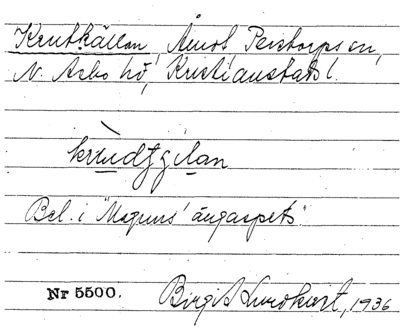 Krutkällan, Åmot Perstorps sn,
N. Åsbo hd, Kristianstads l.
Bel. i "Magnus' ängaspets"
Nr 5500. Birgit Lundkvist, 1936